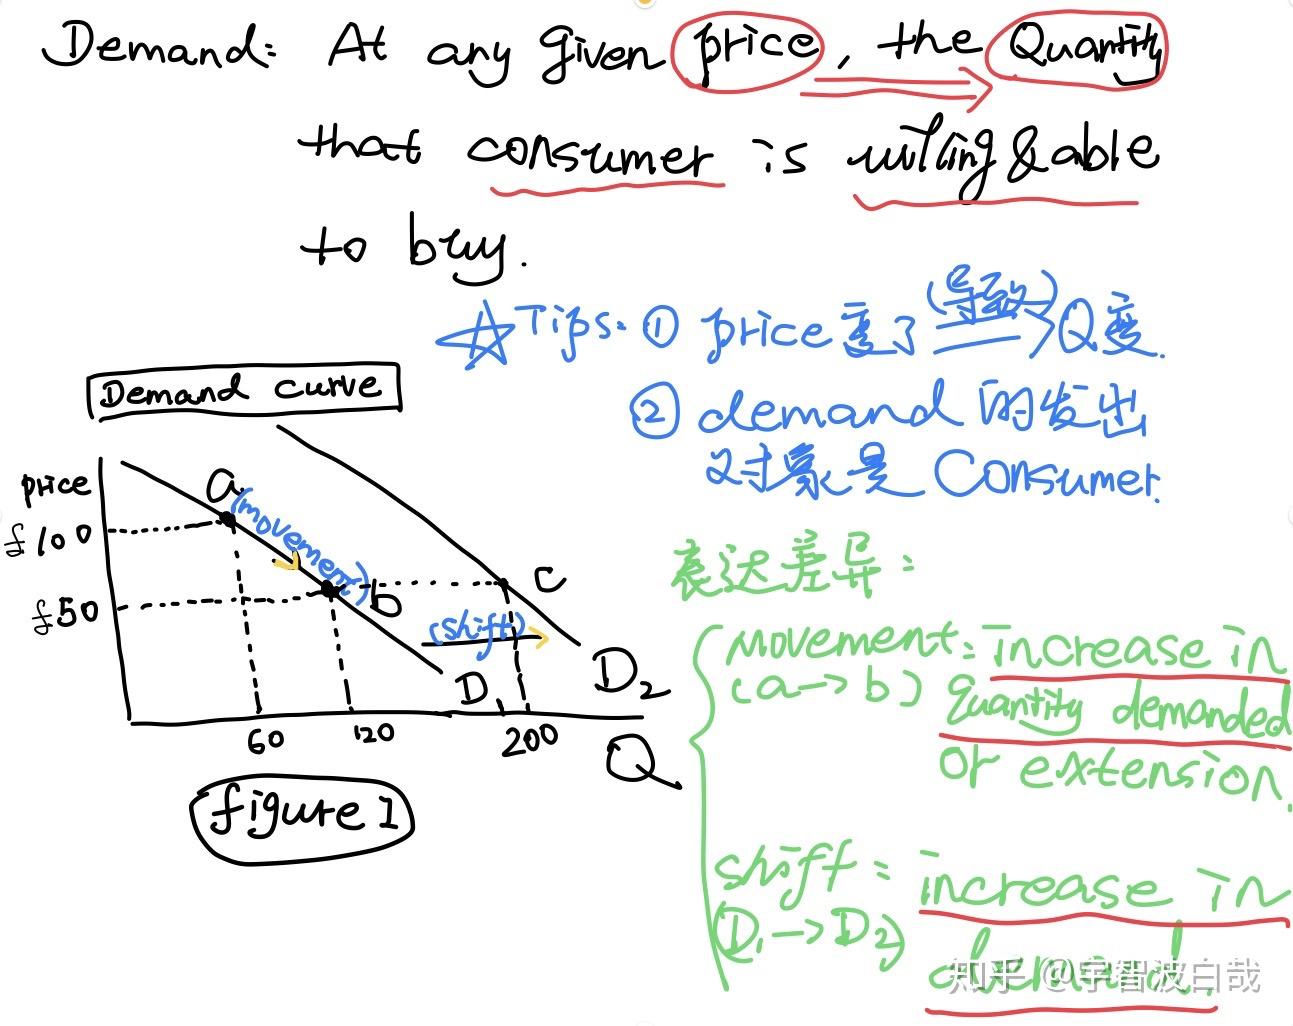 Demand: At any given price, the Quantity
that consumer is willing & able
to buy.
☆Tips: ① price变了 (导致) Q变.
② demand 的发出
对象是 Consumer.
Demand curve
price
£100
£50
a
(movement)
b
c
(shift)
D1
D2
60
120
200
Q
figure 1
表达差异:
movement: increase in
(a→b) quantity demanded
or extension.
shift: increase in
(D1→D2) demand.
知乎 @宇智波白哉